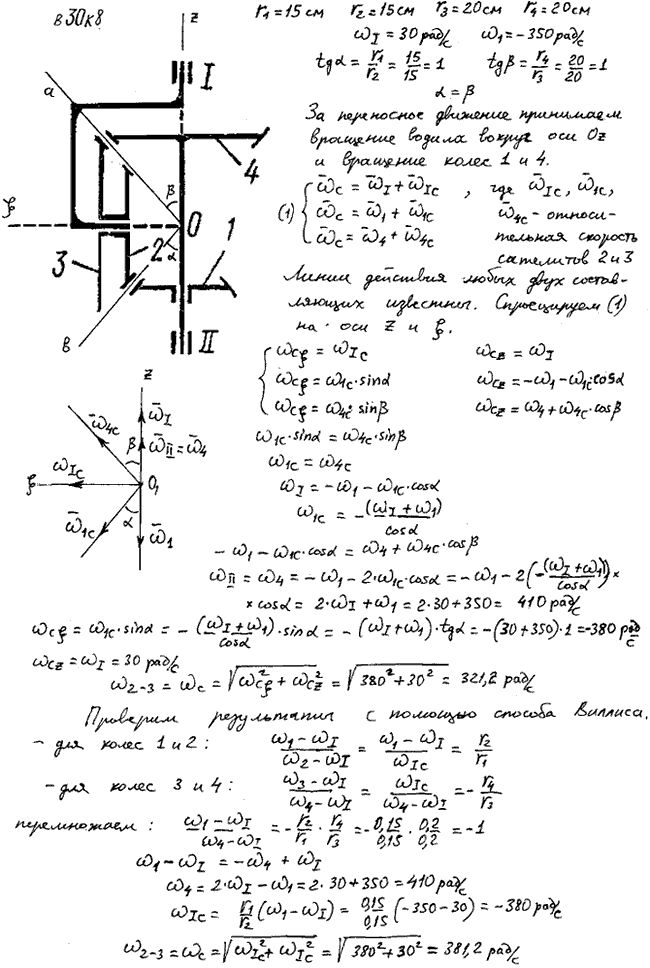 в 30к8
r₁ = 15 см r₂ = 15 см r₃ = 20 см r₄ = 20 см
ω_I = 30 рад/с ω₁ = -350 рад/с
tgα = r₁/r₂ = 15/15 = 1 tgβ = r₄/r₃ = 20/20 = 1
α = β
За переносное движение принимаем
вращение водила вокруг оси Oz
и вращение колес 1 и 4.
(1) { ω̄_c = ω̄_I + ω̄_Ic , где ω̄_Ic, ω̄_1c,
ω̄_c = ω̄_1 + ω̄_1c ω̄_4c - относи-
ω̄_c = ω̄_4 + ω̄_4c тельная скорость
сателитов 2 и 3
Линии действия любых двух состав-
ляющих известны. Спроецируем (1)
на оси z и ξ.
{ ω_cξ = ω_Ic ω_cz = ω_I
ω_cξ = ω_1c·sinα ω_cz = -ω₁ - ω_1c·cosα
ω_cξ = ω_4c·sinβ ω_cz = ω₄ + ω_4c·cosβ
ω_1c·sinα = ω_4c·sinβ
ω_1c = ω_4c
ω_I = -ω₁ - ω_1c·cosα
ω_1c = -(ω_I + ω₁)/cosα
-ω₁ - ω_1c·cosα = ω₄ + ω_4c·cosβ
ω_II = ω₄ = -ω₁ - 2·ω_1c·cosα = -ω₁ - 2(-(ω_I + ω₁)/cosα)×
×cosα = 2·ω_I + ω₁ = 2·30 + 350 = 410 рад/с
ω_cξ = ω_1c·sinα = -(ω_I + ω₁)/cosα·sinα = -(ω_I + ω₁)·tgα = -(30 + 350)·1 = -380 рад/с
ω_cz = ω_I = 30 рад/с
ω₂₋₃ = ω_c = √(ω²_cξ + ω²_cz) = √(380² + 30²) = 321,2 рад/с
Проверим результаты с помощью способа Виллиса.
- для колес 1 и 2: (ω₁ - ω_I)/(ω₂ - ω_I) = (ω₁ - ω_I)/ω_Ic = r₂/r₁
- для колес 3 и 4: (ω₃ - ω_I)/(ω₄ - ω_I) = ω_Ic/(ω₄ - ω_I) = -r₄/r₃
перемножаем: (ω₁ - ω_I)/(ω₄ - ω_I) = -r₂/r₁ · r₄/r₃ = -0,15/0,15 · 0,2/0,2 = -1
ω₁ - ω_I = -ω₄ + ω_I
ω₄ = 2·ω_I - ω₁ = 2·30 + 350 = 410 рад/с
ω_Ic = r₁/r₂(ω₁ - ω_I) = 0,15/0,15(-350 - 30) = -380 рад/с
ω₂₋₃ = ω_c = √(ω²_Ic + ω²_Ic) = √(380² + 30²) = 381,2 рад/с
z
I
a
4
β
ξ
O
1
3
2
α
в
II
z
ω̄_I
ω̄_4c
β
ω̄_II = ω̄_4
ω̄_Ic
ξ
O₁
α
ω̄_1c
ω̄_1